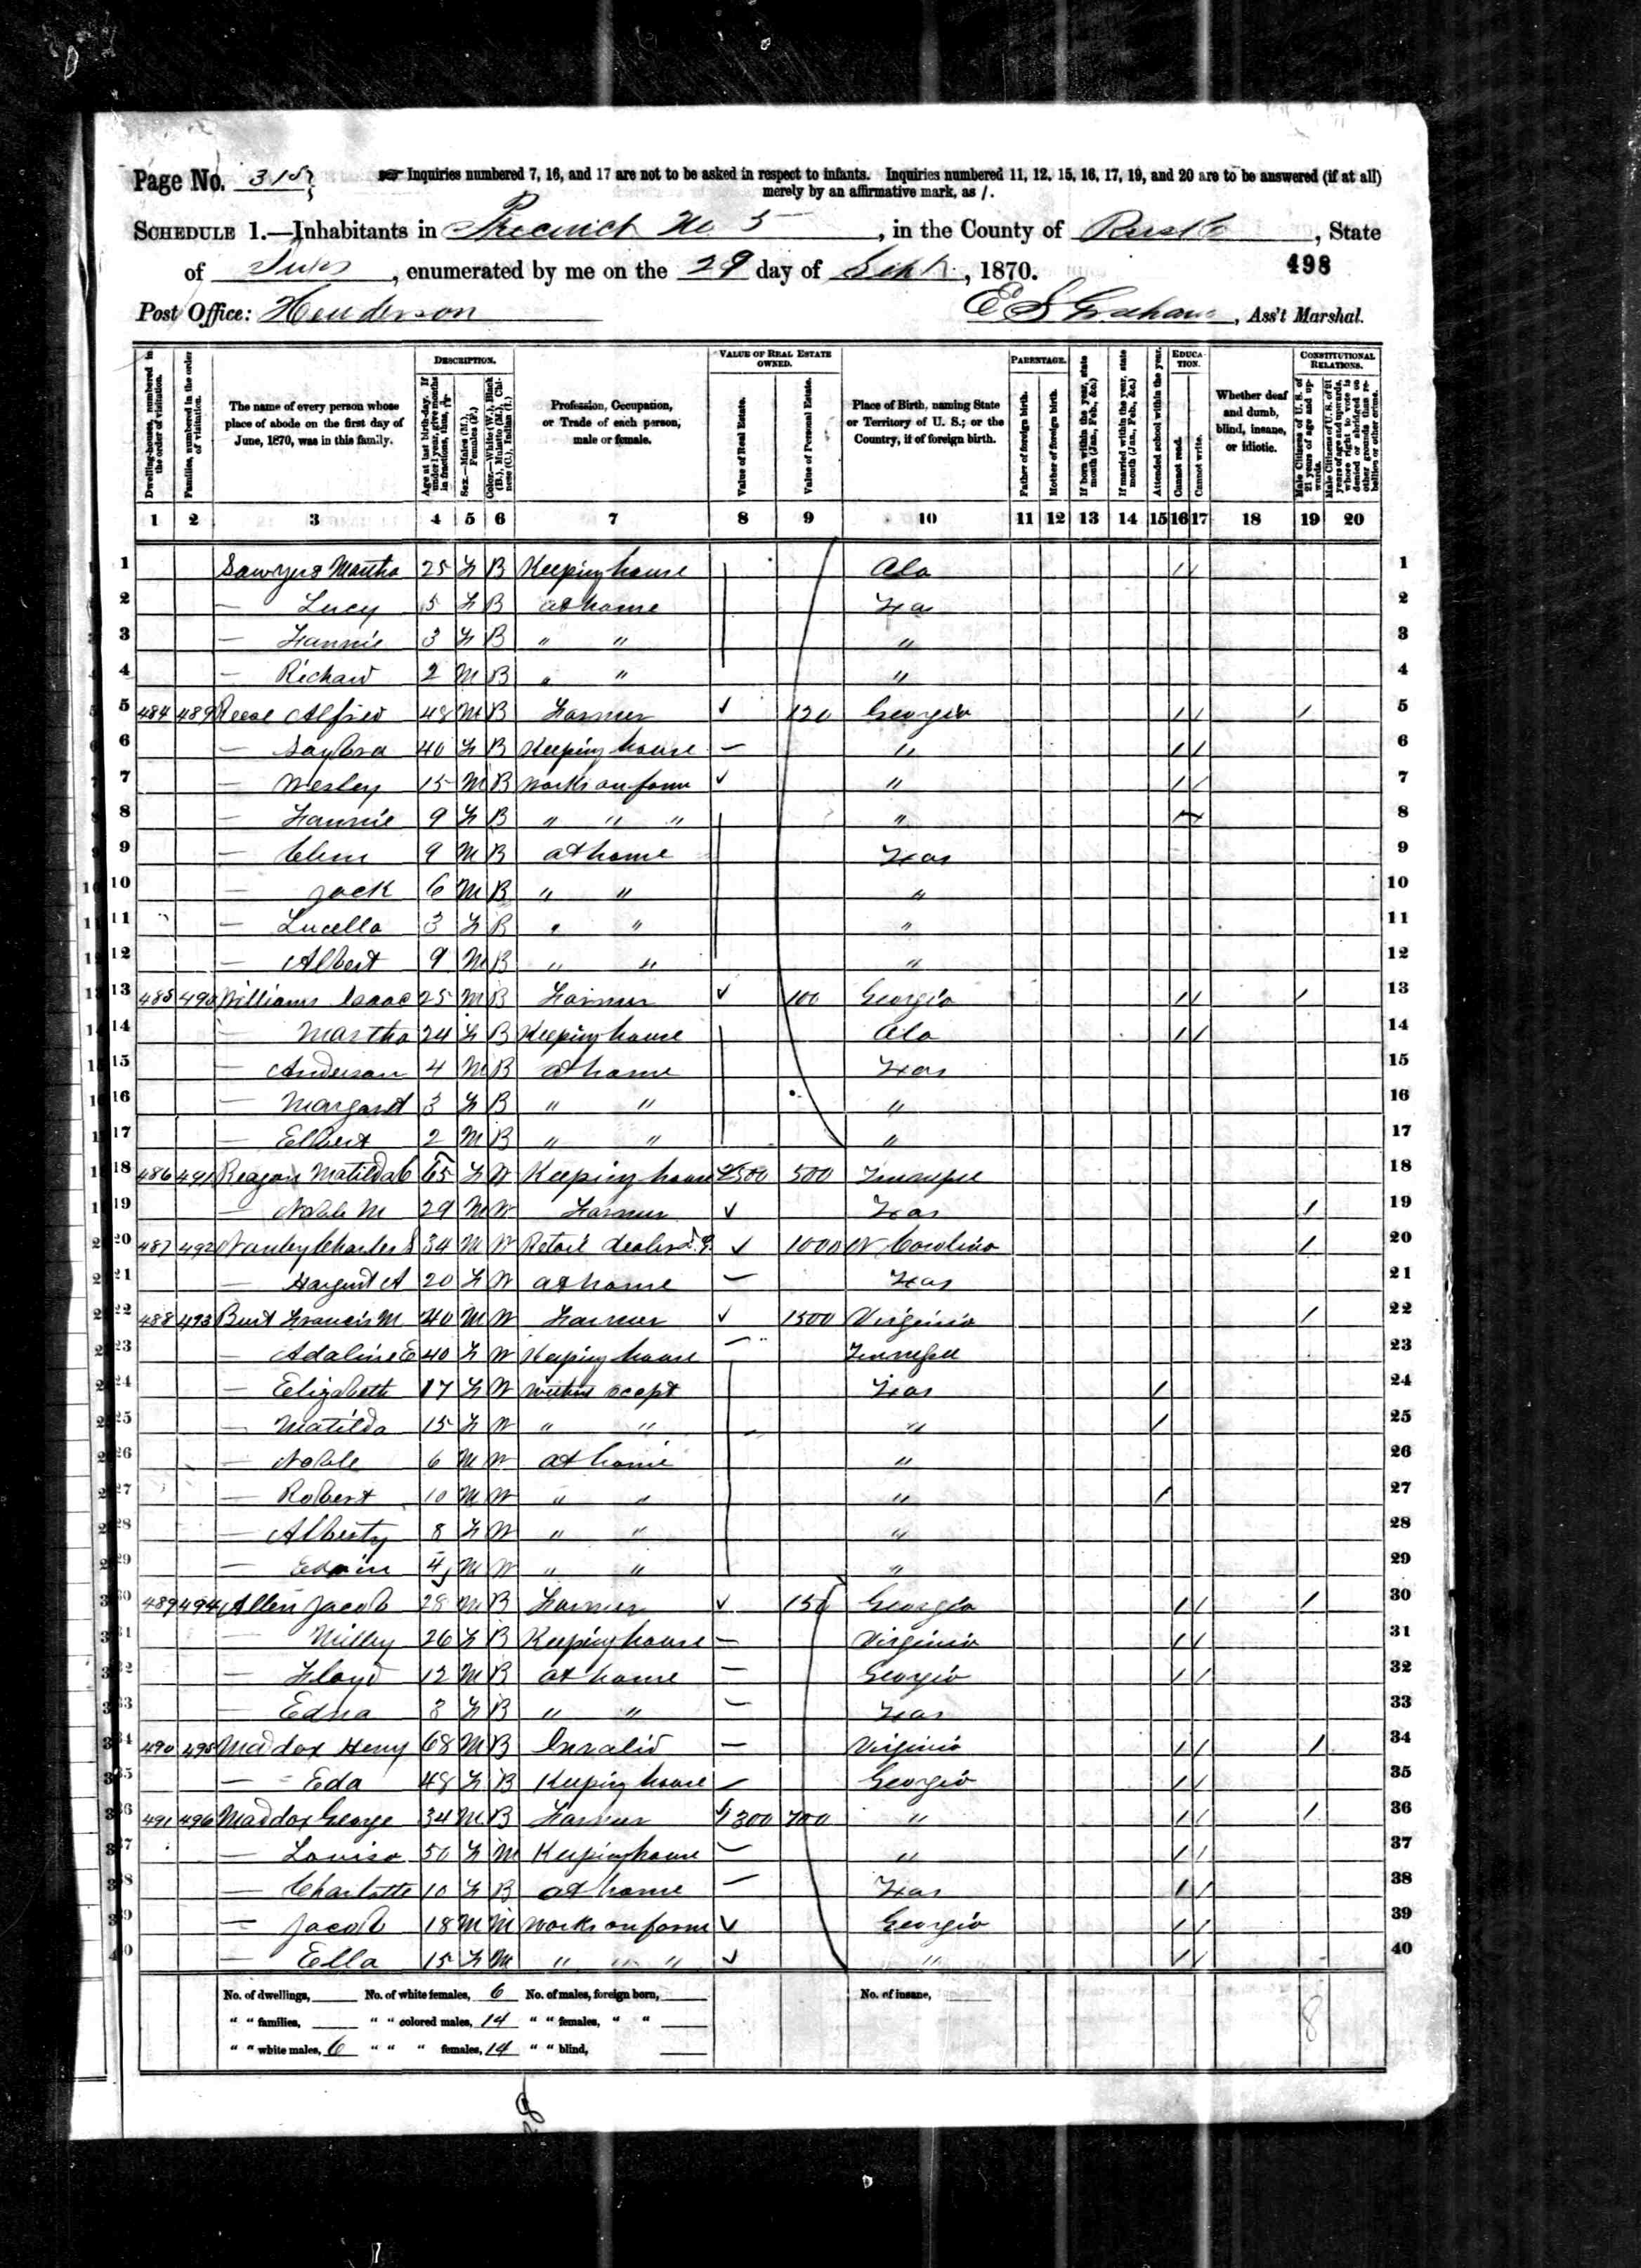 Page No. 315
Inquiries numbered 7, 16, and 17 are not to be asked in respect to infants. Inquiries numbered 11, 12, 15, 16, 17, 19, and 20 are to be answered (if at all)
merely by an affirmative mark, as /.
SCHEDULE 1.—Inhabitants in Precinct No 5, in the County of Rusk, State
of Texas, enumerated by me on the 29 day of Sept, 1870. 498
Post Office: Henderson E S Graham, Ass't Marshal.
Dwelling-houses, numbered in the order of visitation.
Families, numbered in the order of visitation.
The name of every person whose place of abode on the first day of June, 1870, was in this family.
DESCRIPTION.
Age at last birth-day. If under 1 year, give months in fractions, thus,
Sex.—Males (M.), Females (F.)
Color.—White (W.), Black (B.), Mulatto (M.), Chinese (C.), Indian (I.)
Profession, Occupation, or Trade of each person, male or female.
VALUE OF REAL ESTATE OWNED.
Value of Real Estate.
Value of Personal Estate.
Place of Birth, naming State or Territory of U. S.; or the Country, if of foreign birth.
PARENTAGE.
Father of foreign birth.
Mother of foreign birth.
If born within the year, state month (Jan., Feb., &c.)
If married within the year, state month (Jan., Feb., &c.)
Attended school within the year.
EDUCATION.
Cannot read.
Cannot write.
Whether deaf and dumb, blind, insane, or idiotic.
CONSTITUTIONAL RELATIONS.
Male Citizens of U. S. of 21 years of age and upwards.
Male Citizens of U. S. of 21 years of age and upwards, whose right to vote is denied or abridged on other grounds than rebellion or other crime.
1 2 3 4 5 6 7 8 9 10 11 12 13 14 15 16 17 18 19 20
1 Sawyers Martha 25 F B Keeping house Ala / / 1
2 — Lucy 5 F B at home Texas 2
3 — Fannie 3 F B " " " 3
4 — Richard 2 M B " " " 4
5 484 489 Reese Alfred 48 M B Farmer ✓ 120 Georgia / / / 5
6 — 40 F B Keeping house — " / / 6
7 — Wesley 15 M B Works on farm ✓ " / / 7
8 — Fannie 9 F B " " " " 8
9 — Clem 9 M B at home Texas 9
10 — Jack 6 M B " " " 10
11 — Lucella 3 F B " " " 11
12 — Albert 9 M B " " " 12
13 485 490 Williams Isaac 25 M B Farmer ✓ 100 Georgia / / / 13
14 — Martha 24 F B Keeping house Ala / / 14
15 — Anderson 4 M B at home Texas 15
16 — Margaret 3 F B " " " 16
17 — Elbert 2 M B " " " 17
18 486 491 Reagan Matilda C 65 F W Keeping house 500 Tennessee 18
19 — Noble M 29 M W Farmer ✓ Texas / 19
20 487 492 Charles S 34 M W Retail dealer ✓ 1000 N Carolina / 20
21 — Margaret A 20 F W at home — Texas 21
22 488 493 Burt Francis M 40 M W Farmer ✓ 1500 Virginia / 22
23 — Adaline E 40 F W Keeping house — Tennessee 23
24 — Elizabeth 17 F W without occupt Texas / 24
25 — Matilda 15 F W " " " / 25
26 — Noble 6 M W at home " 26
27 — Robert 10 M W " " " / 27
28 — Alberty 8 F W " " " 28
29 — Edwin 4 M W " " " 29
30 489 494 Allen Jacob 28 M B Farmer ✓ 150 Georgia / / / 30
31 — Milley 26 F B Keeping house — Virginia / / 31
32 — Floyd 12 M B at home — Georgia / / 32
33 — Edna 3 F B " " — Texas 33
34 490 495 Maddox Henry 68 M B Invalid — Virginia / / / 34
35 — Eda 48 F B Keeping house — Georgia / / 35
36 491 496 Maddox George 34 M B Farmer 300 700 " / / / 36
37 — Louisa 50 F M Keeping house — " / / 37
38 — Charlotte 10 F B at home — Texas / / 38
39 — Jacob 18 M M Works on farm ✓ Georgia / / 39
40 — Ella 15 F M " " " ✓ " / / 40
No. of dwellings, No. of white females, 6 No. of males, foreign born, No. of insane,
" " families, " " colored males, 14 " " females, " " 8
" " white males, 6 " " " females, 14 " " blind,